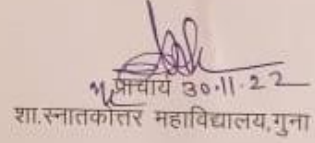 प्राचार्य 30.11.22
शा.स्नातकोत्तर महाविद्यालय,गुना